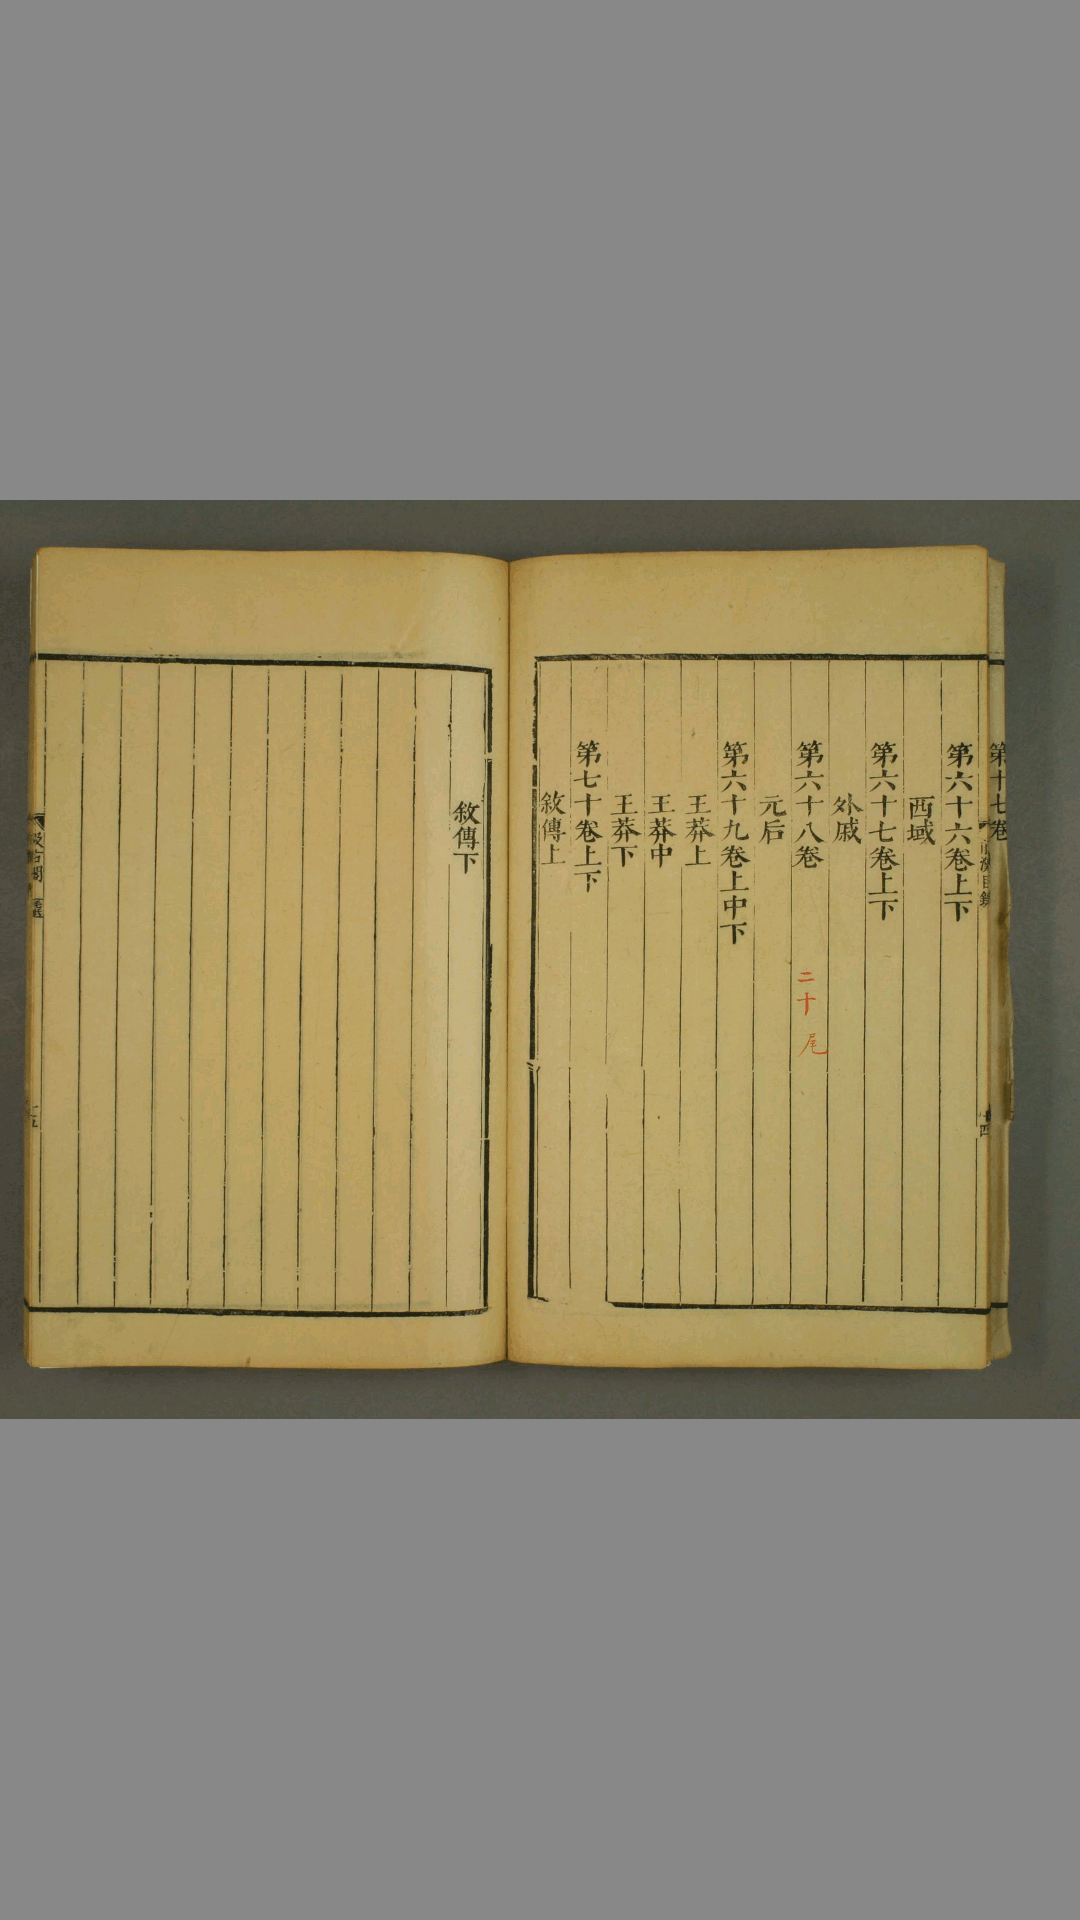 第十七卷
第六十六卷上下
西域
第六十七卷上下
外戚
第六十八卷
二十尾
元后
第六十九卷上中下
王莽上
王莽中
王莽下
第七十卷上下
敘傳上
敘傳下
汲古閣
十五